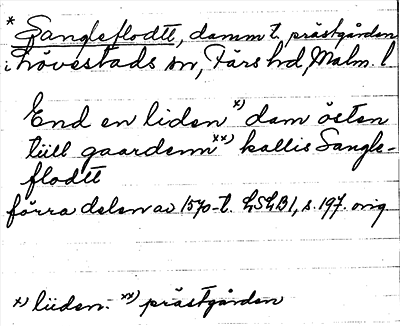 * Sangleflodtt, damm t. prästgården
i Lövestads sn, Färs hd, Malm. l
End en liden x) dam östen
tiill gaardenn xx) kallis Sangle-
flodtt
förra delen av 1570-t. LSLB 1, s. 197. orig
x) liiden. xx) prästgården